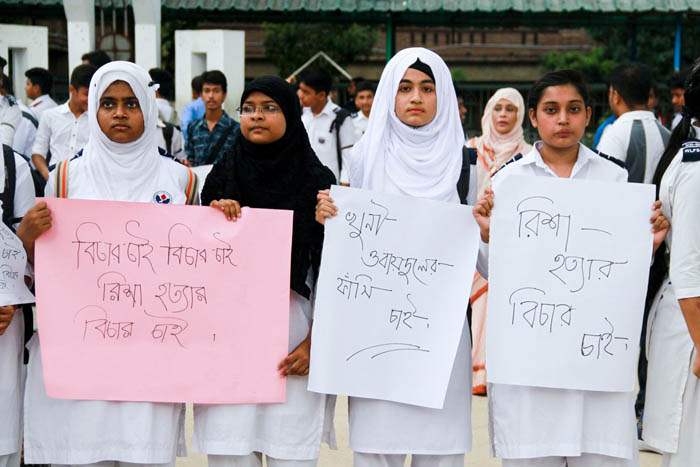 বিচার চাই বিচার চাই
রিশা হত্যার
বিচার চাই.
খুনী
ওবায়দুলের
ফাঁসি
চাই.
রিশা
হত্যার
বিচার
চাই.
WLFS